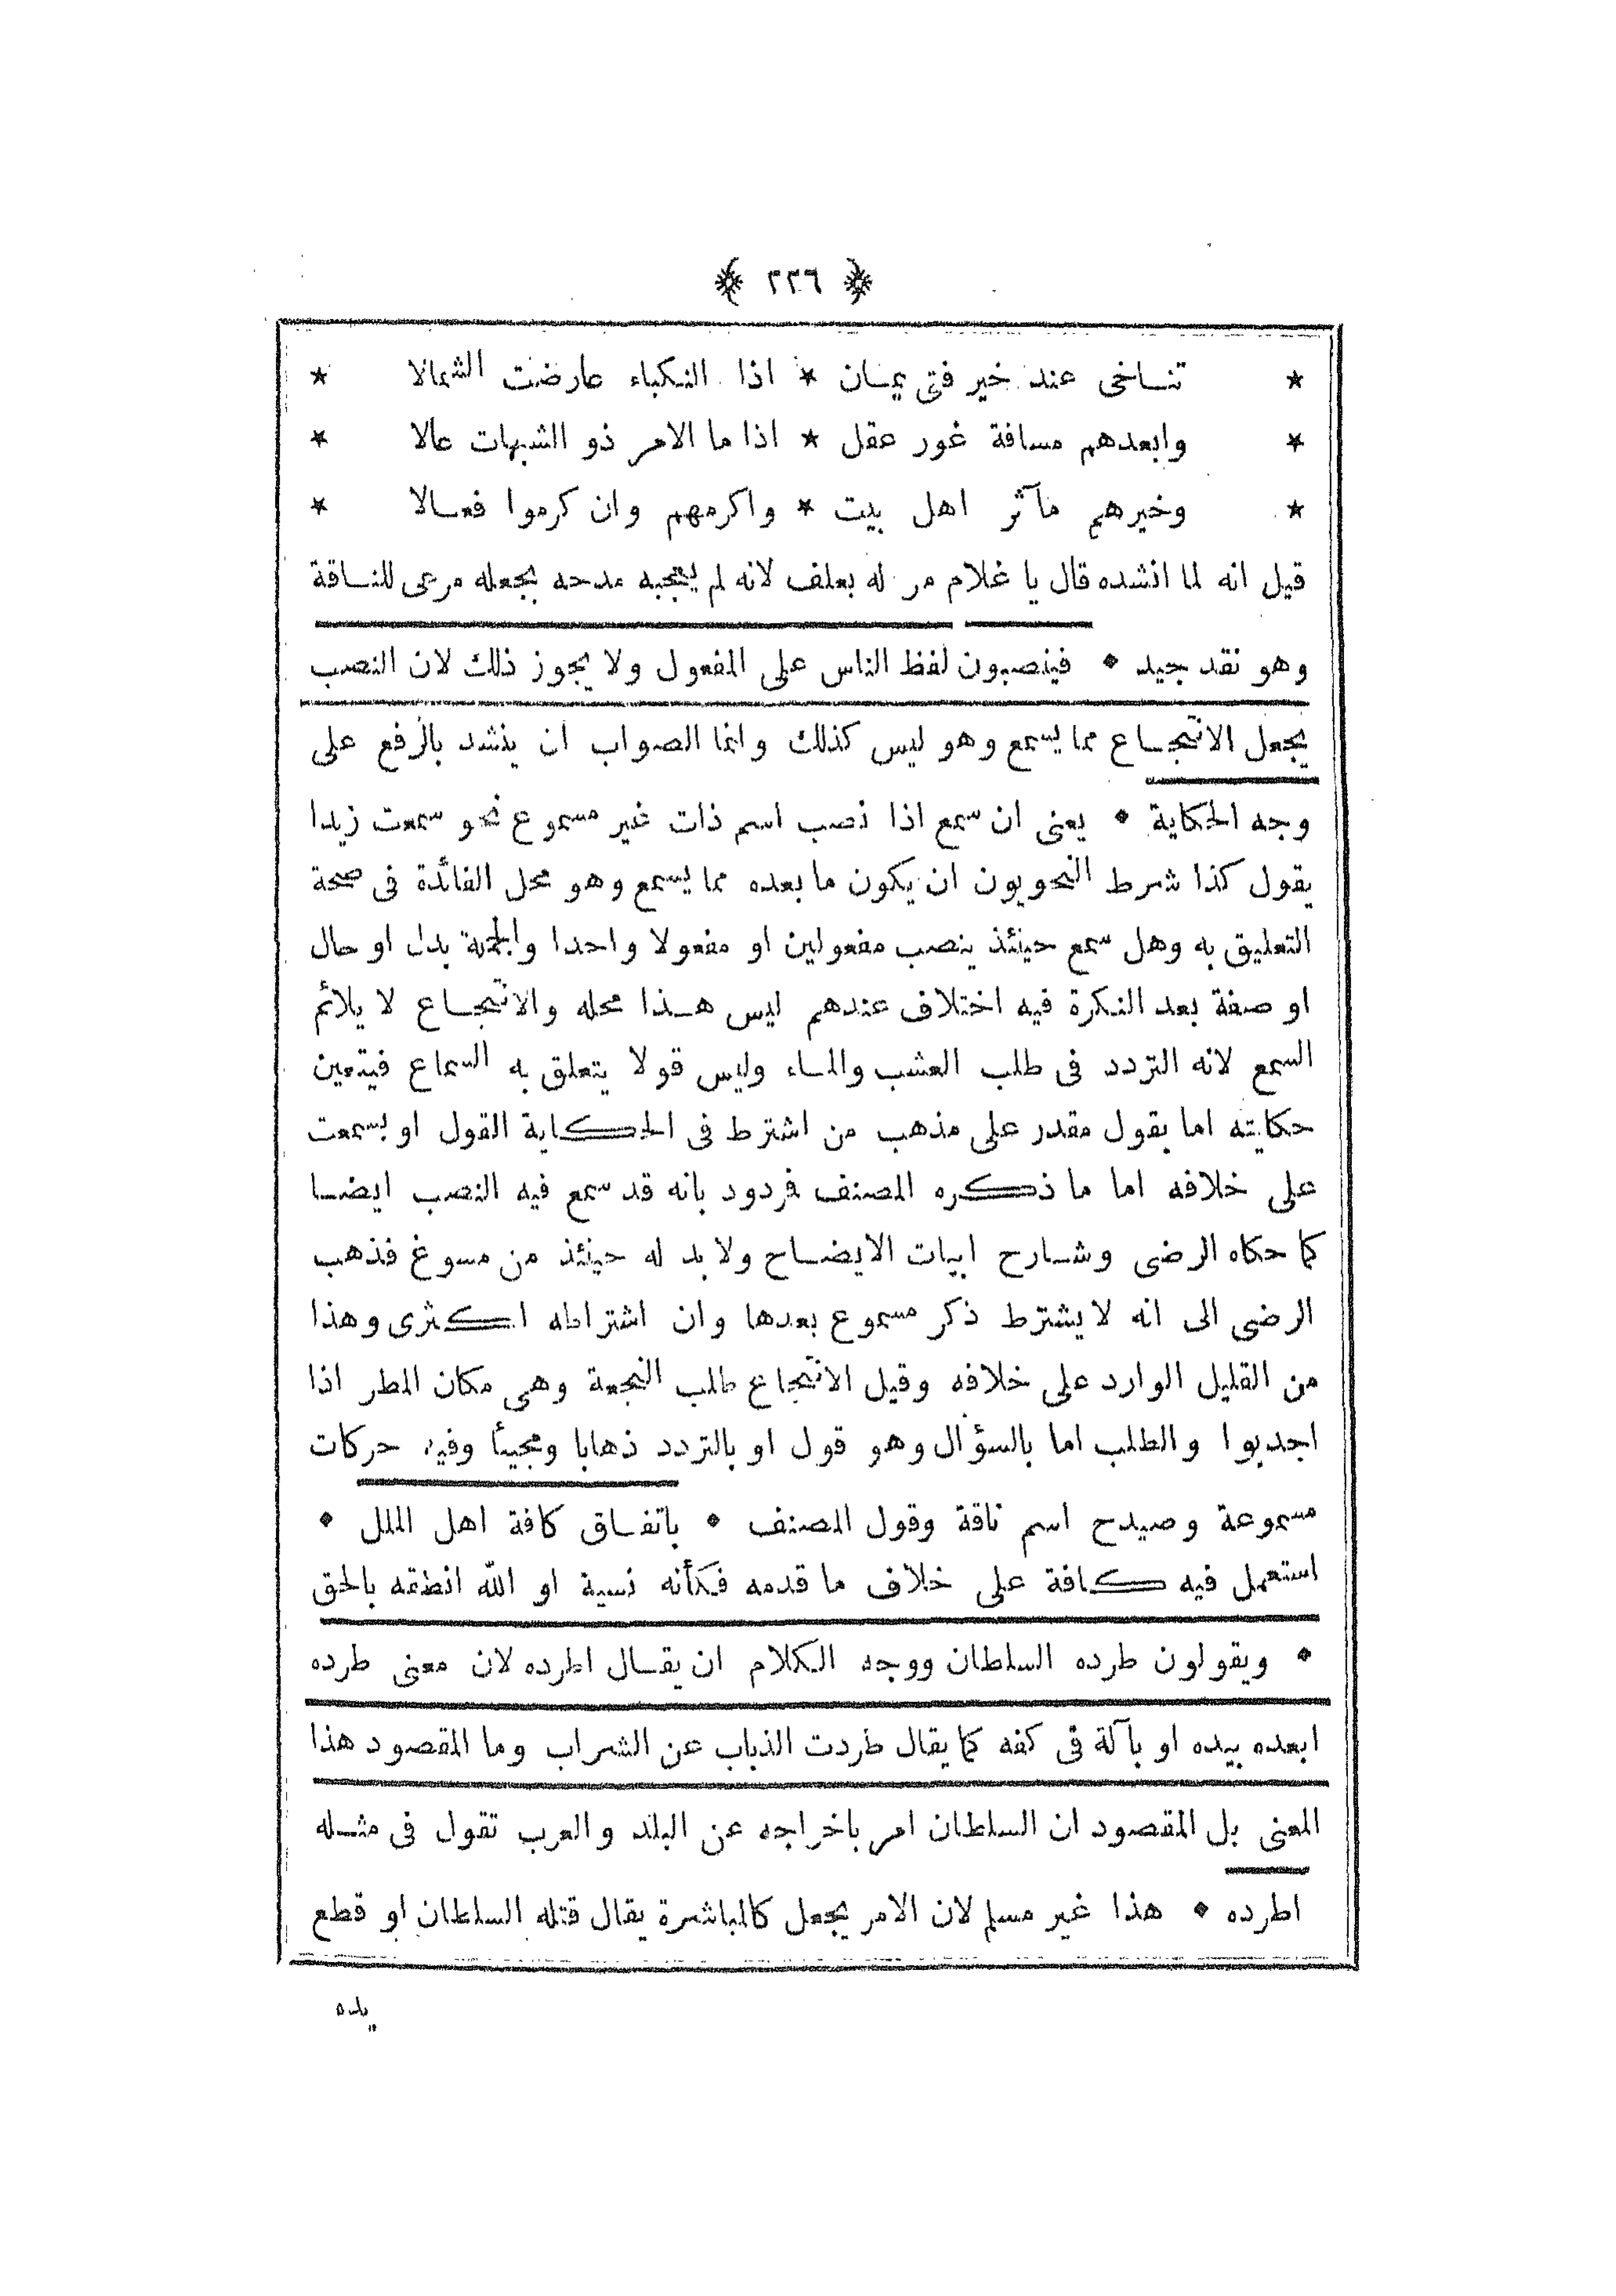 ﴿ ٢٢٦ ﴾
* تنـاخى عند خير فتى يمـان * اذا النكباء عارضت الشمالا *
* وابعدهم مسافة غور عقل * اذا ما الامر ذو الشبهات عالا *
* وخيرهم مآثر اهل بيت * واكرمهم وان كرموا فعـالا *
قيل انه لما انشده قال يا غلام مر له بعلف لانه لم يعجبه مدحه بجعله مرعى للنـاقة
وهو نقد جيد • فينصبون لفظ الناس على المفعول ولا يجوز ذلك لان النصب
يجعل الانتجـاع مما يسمع وهو ليس كذلك وانما الصواب ان ينشد بالرفع على
وجه الحكاية • يعنى ان سمع اذا نصب اسم ذات غير مسموع نحو سمعت زيدا
يقول كذا شرط النحويون ان يكون ما بعده مما يسمع وهو محل الفائدة فى صحة
التعليق به وهل سمع حينئذ ينصب مفعولين او مفعولا واحدا والجملة بدل او حال
او صفة بعد النكرة فيه اختلاف عندهم ليس هـذا محله والانتجـاع لا يلائم
السمع لانه التردد فى طلب العشب والمـاء وليس قولا يتعلق به السماع فيتعين
حكايته اما بقول مقدر على مذهب من اشترط فى الحكاية القول او بسمعت
على خلافه اما ما ذكره المصنف فردود بانه قد سمع فيه النصب ايضـا
كما حكاه الرضى وشـارح ابيات الايضـاح ولا بد له حينئذ من مسوغ فذهب
الرضى الى انه لا يشترط ذكر مسموع بعدها وان اشتراطه اكثرى وهذا
من القليل الوارد على خلافه وقيل الانتجاع طلب النجعة وهى مكان المطر اذا
اجدبوا والطلب اما بالسؤال وهو قول او بالتردد ذهابا ومجيئا وفيه حركات
مسموعة وصيدح اسم ناقة وقول المصنف • باتفـاق كافة اهل الملل •
استعمل فيه كافة على خلاف ما قدمه فكأنه نسية او الله انطقه بالحق
• ويقولون طرده السلطان ووجه الكلام ان يقـال اطرده لان معنى طرده
ابعده بيده او بآلة فى كفه كما يقال طردت الذباب عن الشراب وما المقصود هذا
المعنى بل المقصود ان السلطان امر باخراجه عن البلد والعرب تقول فى مثـله
اطرده • هذا غير مسلم لان الامر يجعل كالمباشرة يقال قتله السلطان او قطع
يده